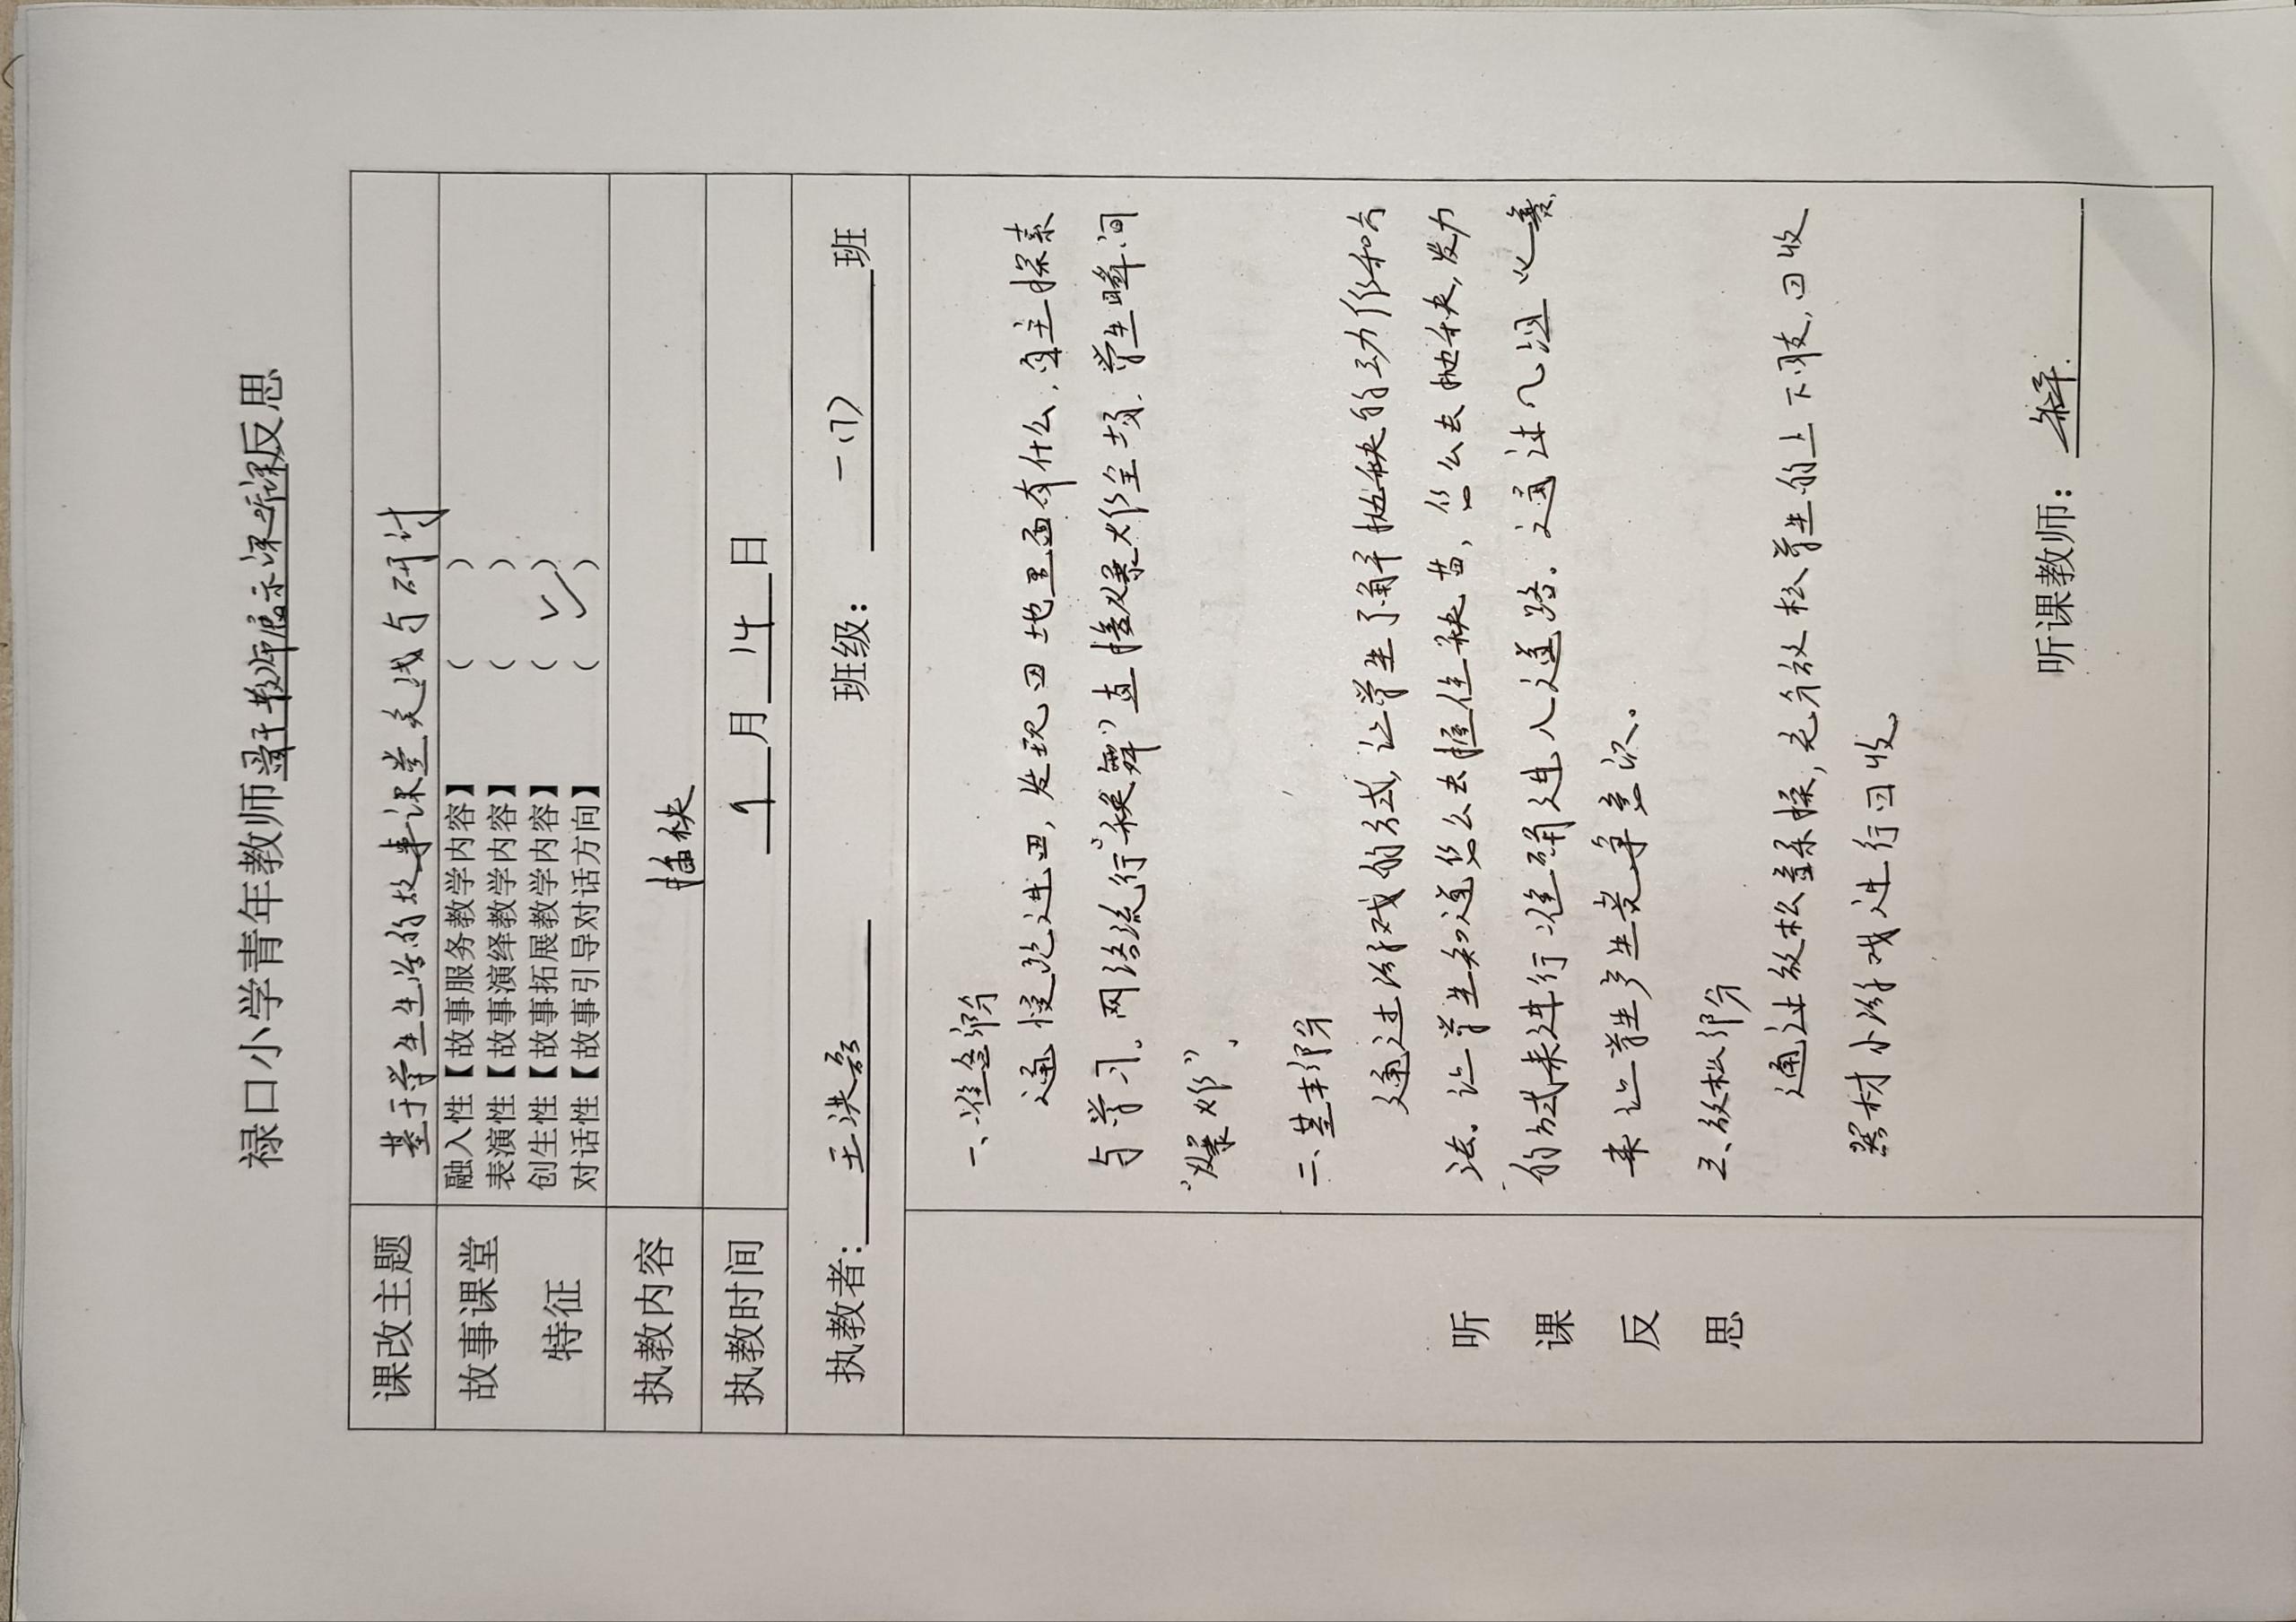 禄口小学青年教师骨干教师展示课听课反思
课改主题 基于学生生活的故事课堂实践与研讨
故事课堂特征
融入性【故事服务教学内容】 （ ）
表演性【故事演绎教学内容】 （ ）
创生性【故事拓展教学内容】 （ ✓ ）
对话性【故事引导对话方向】 （ ✓ ）
执教内容 插秧
执教时间 9 月 14 日
执教者: 王洪磊 班级： 一(7) 班
听课反思
一、准备部分
通慢跑进田，发现田地里面有什么，自主探索
与学习。网络流行“秧舞”直接爆炸全场，学生瞬间
“爆炸”。
二、基本部分
通过游戏的方式，让学生了解抛秧的动作和方
法。让学生知道怎么去握住秧苗，怎么去抛秧，发力
的方式来进行准确进入道路。通过几组比赛，
来让学生产生竞争意识。
三、放松部分
通过放松操，充分放松学生的上下肢，回收
器材小游戏进行回收。
听课教师：